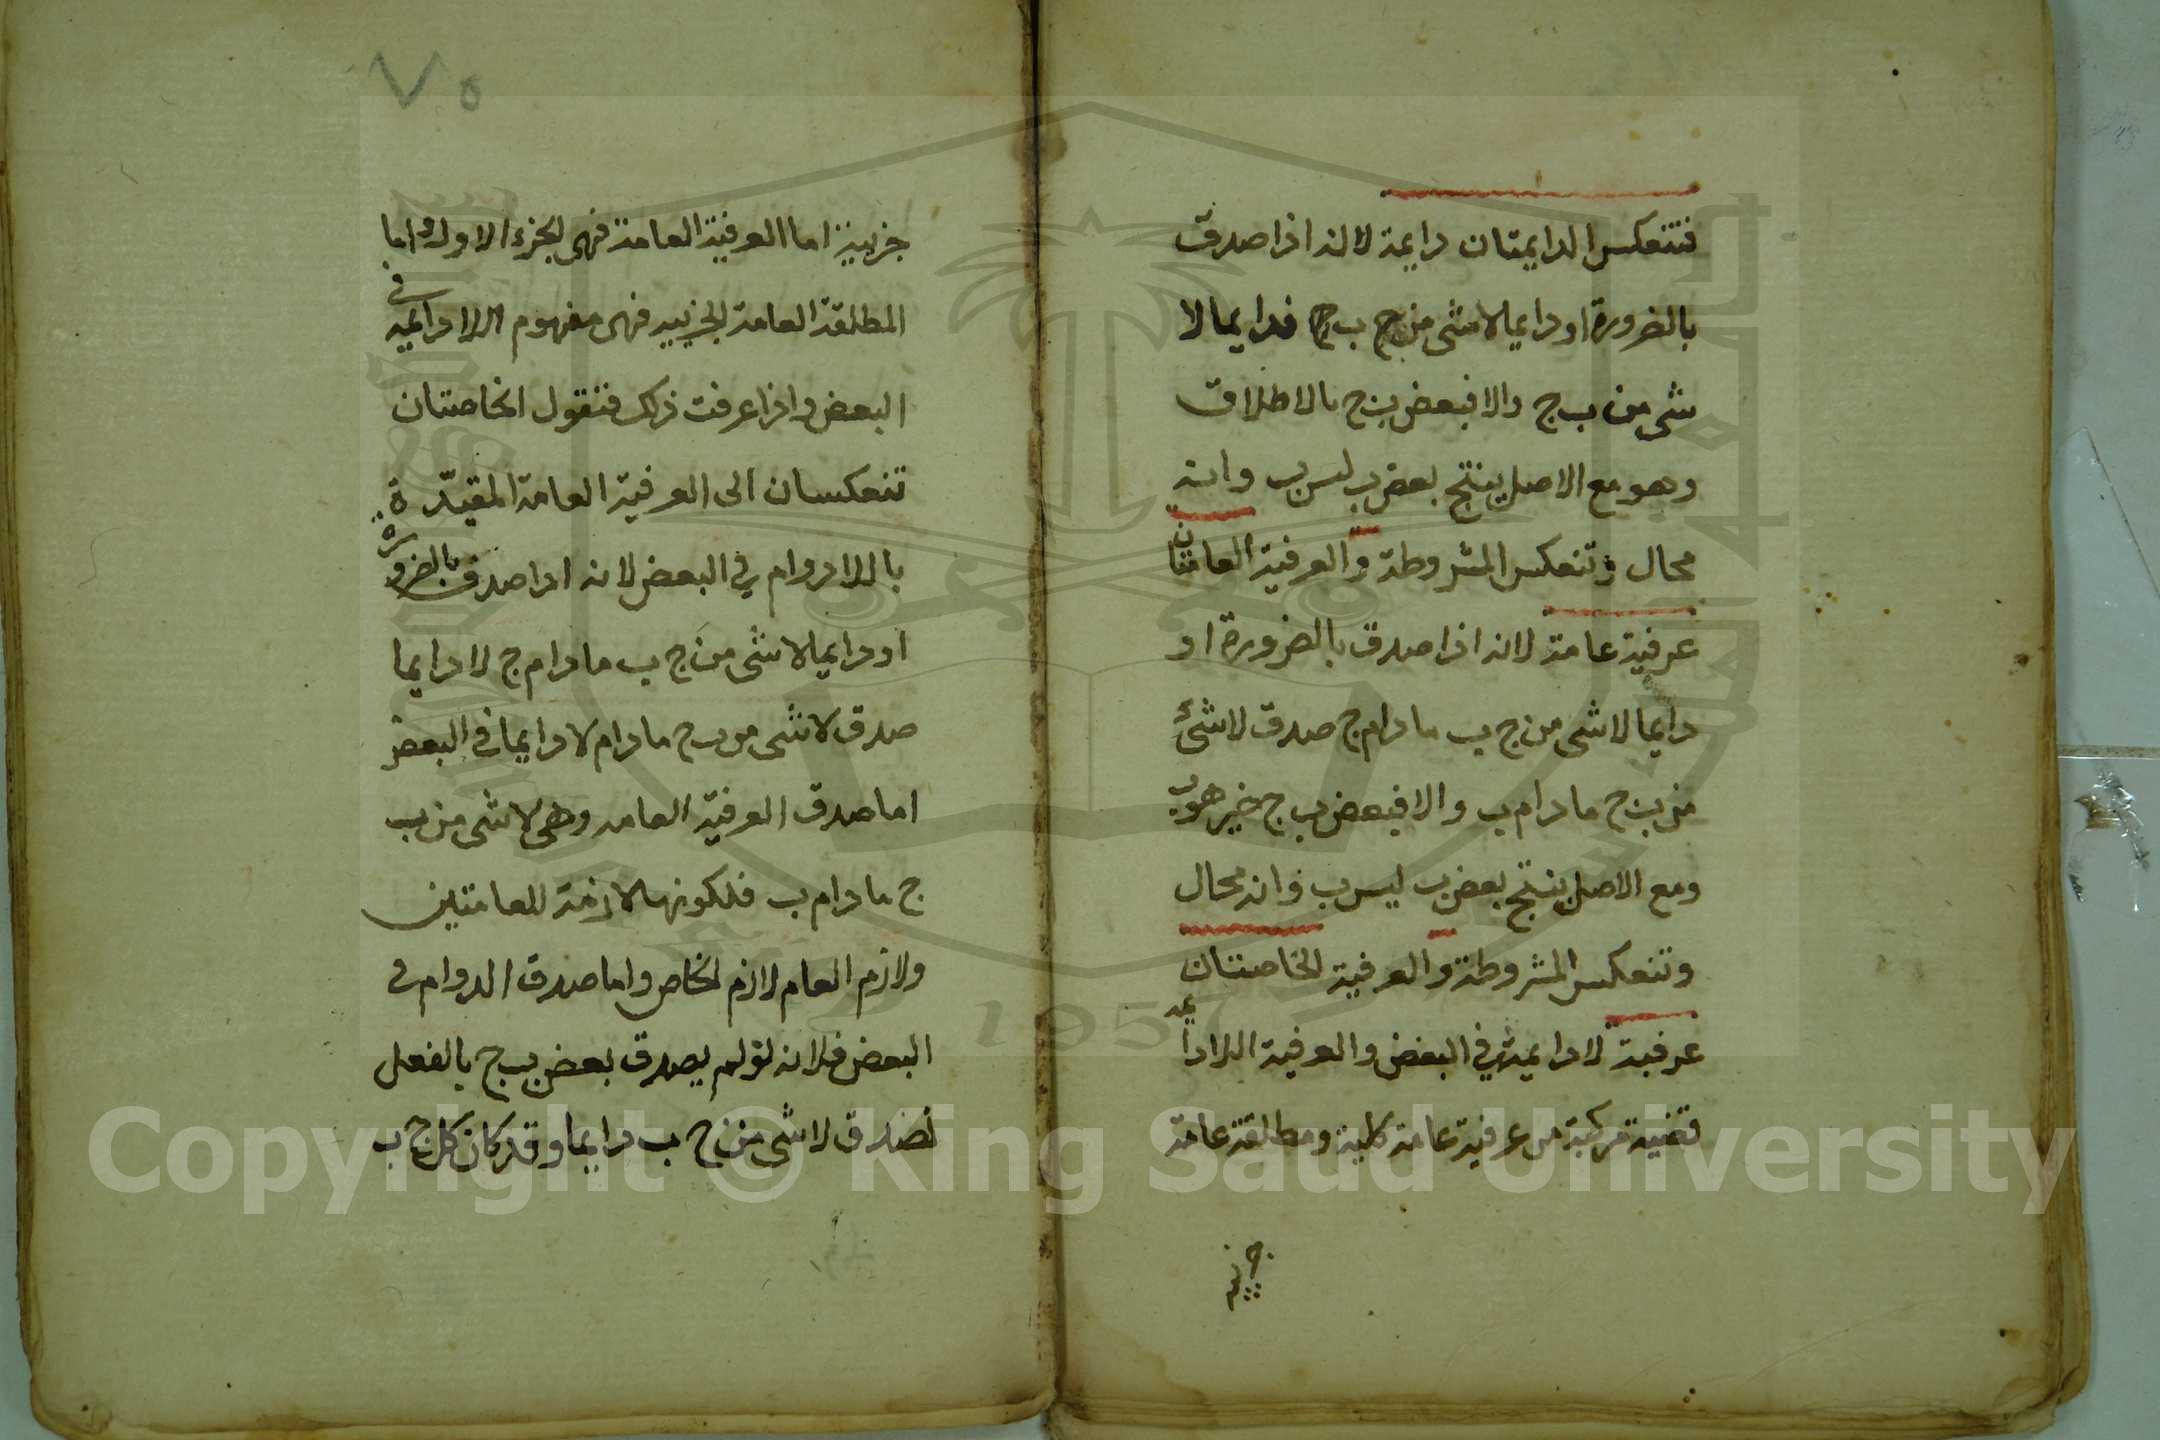 فتنعكس الدايمتان دايمة لانه اذا صدق
بالضرورة او دايما لا شى من ج ب فدايما لا
شى من ب ج والا فبعض ب ج بالاطلاق
وهو مع الاصل ينتج بعض ب ليس ب وانه
محال وتنعكس المشروطة والعرفية العامتان
عرفية عامة لانه اذا صدق بالضرورة او
دايما لا شى من ج ب مادام ج صدق لا شئ
من ب ج مادام ب والا فبعض ب ج حين هو ب
ومع الاصل ينتج بعض ب ليس ب وانه محال
وتنعكس المشروطة والعرفية الخاصتان
عرفية لا دايمة في البعض والعرفية اللادايمه
قضية مركبة من عرفية عامة كلية ومطلقة عامة
جزيية
٧٥
جزيية اما العرفية العامة فهى الجزء الاول واما
المطلقة العامة الجزييه فهى مفهوم اللادايمه في
البعض واذا عرفت ذلك فنقول الخاصتان
تنعكسان الى العرفية العامة المقيدة
باللادوام في البعض لانه اذا صدق بالضروره
او دايما لا شى من ج ب مادام ج لا دايما
صدق لا شى من ب ج مادام لا دايما في البعض
اما صدق العرفية العامه وهى لا شى من ب
ج مادام ب فلكونها لازمة للعامتين
ولازم العام لازم الخاص واما صدق الدوام في
البعض فلانه لو لم يصدق بعض ب ج بالفعل
لصدق لا شى من ج ب دايما وقد كان كل ج ب
1957
Copyright © King Saud University